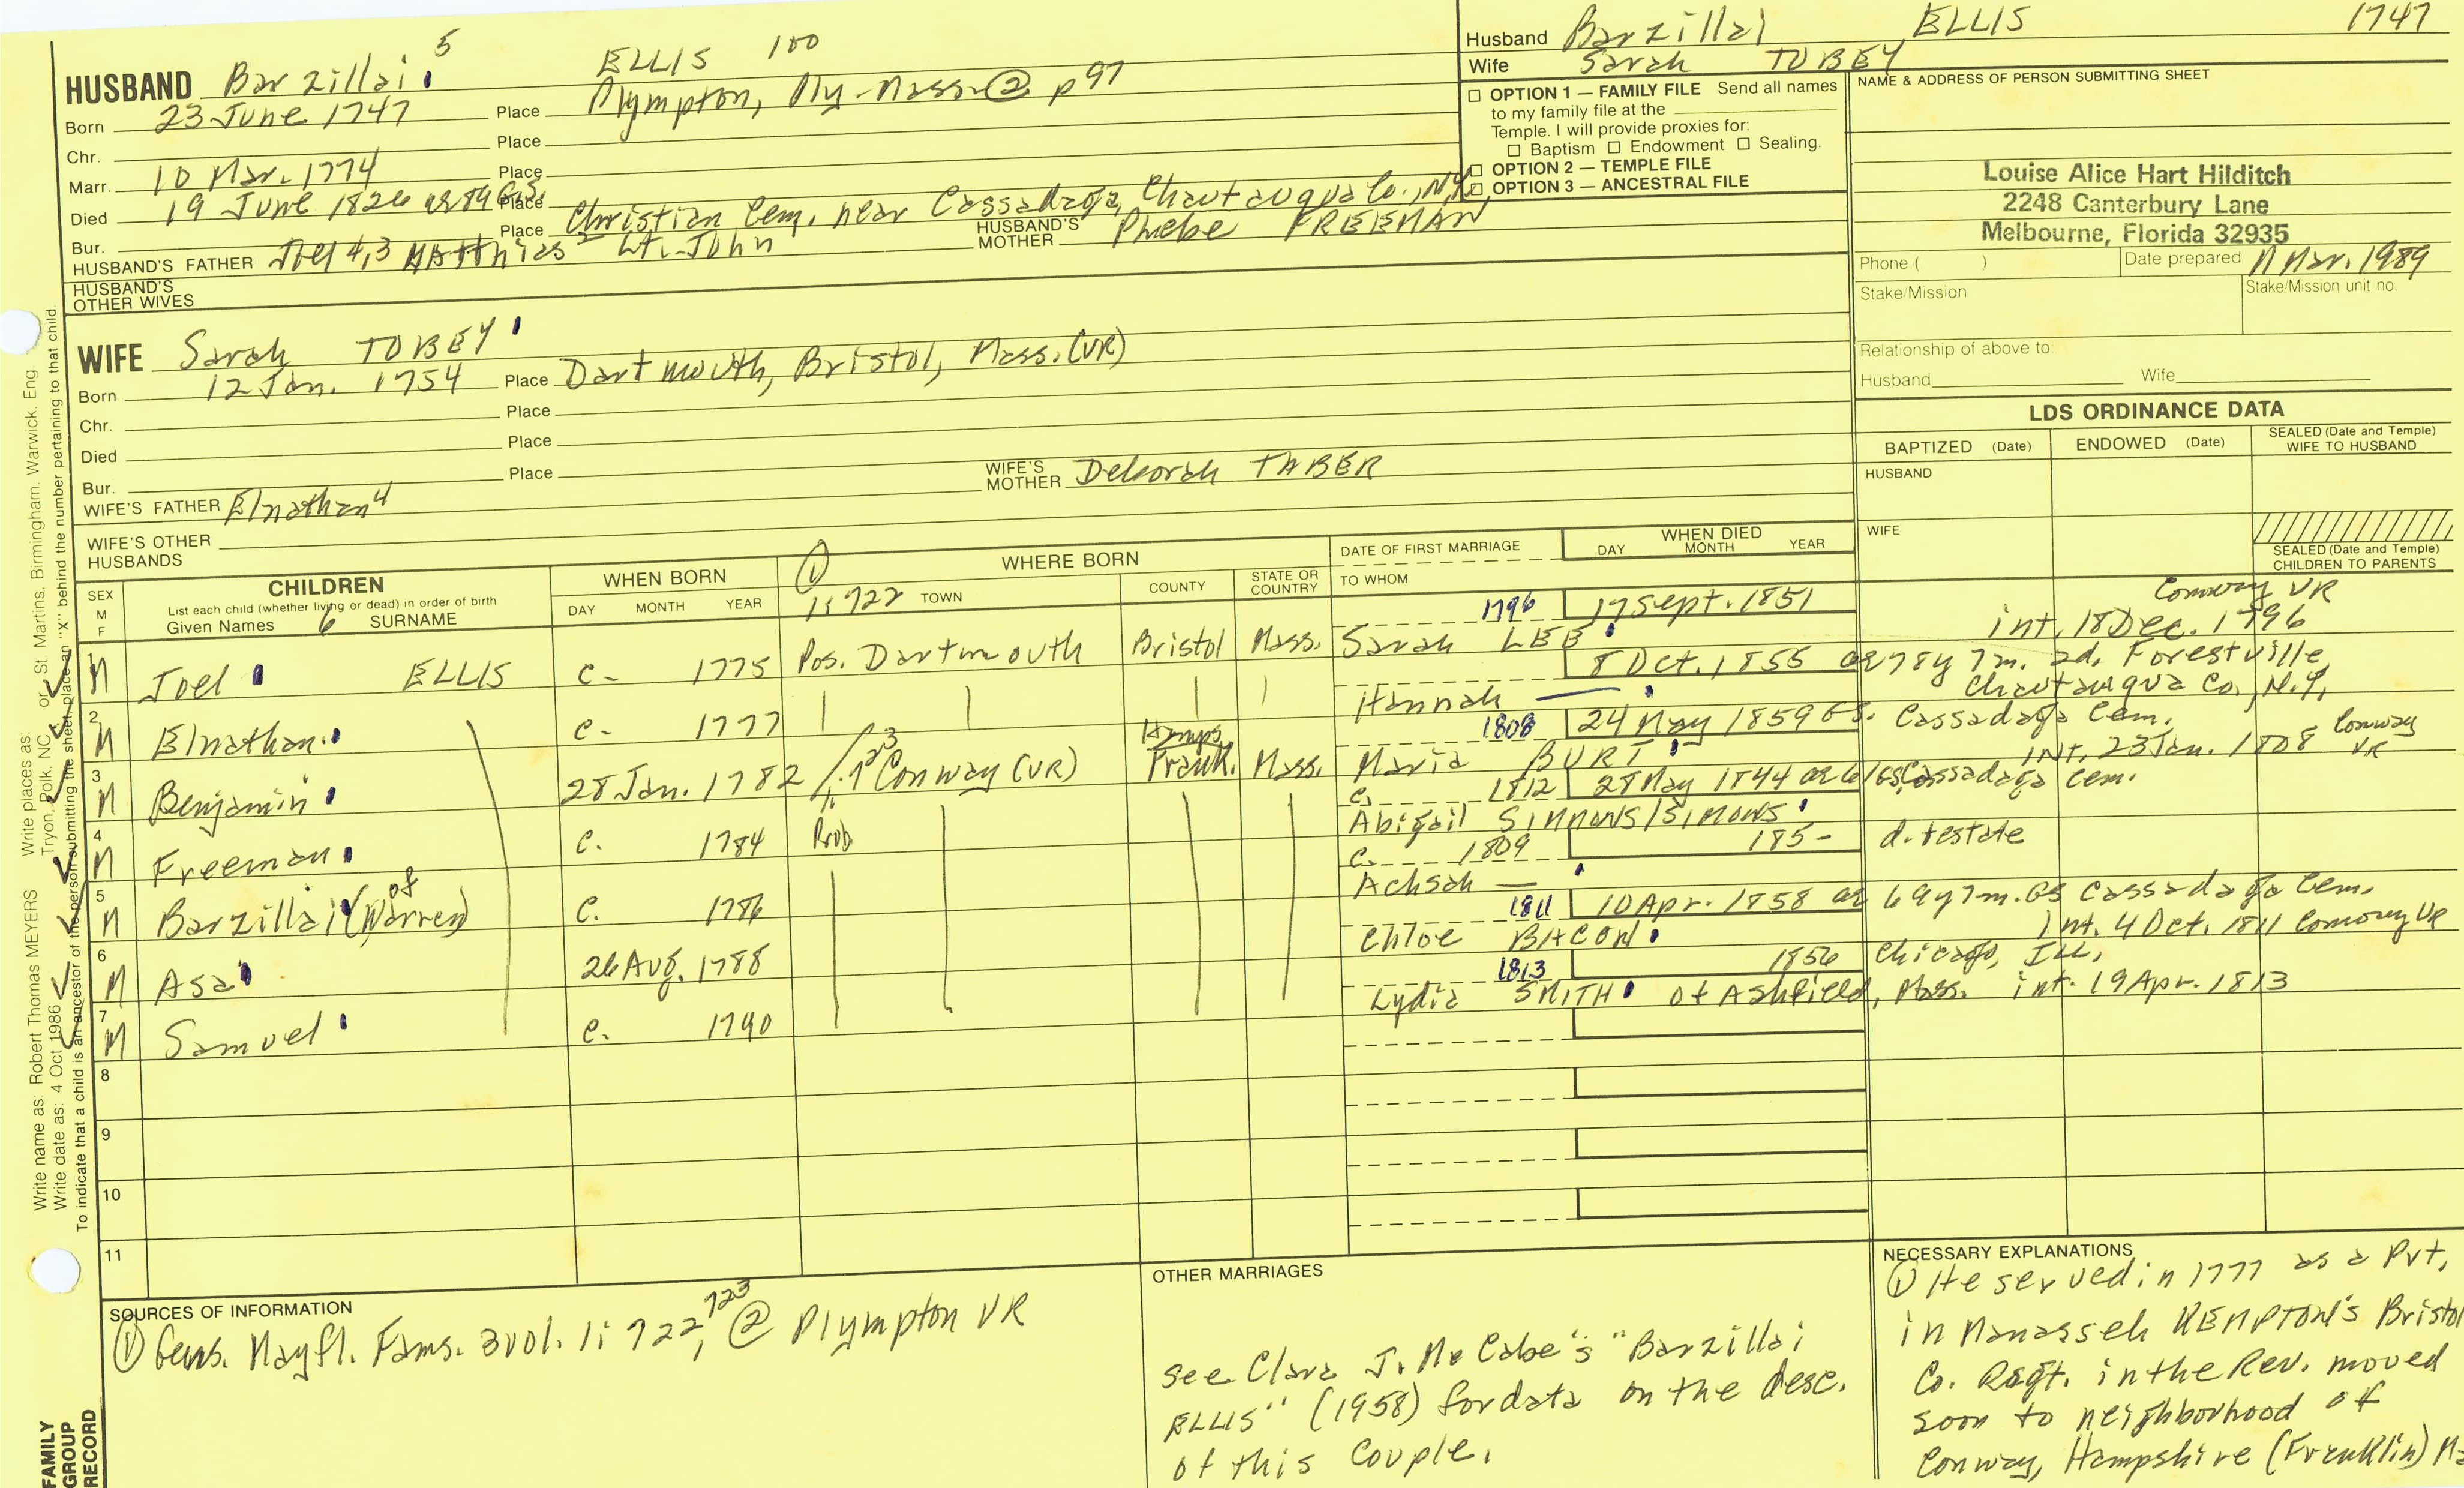 HUSBAND Barzillai 5 ELLIS 100
Born 23 June 1747 Place Plympton, Ply-Mass. ② p97
Chr. Place
Marr. 10 Mar. 1774 Place
Died 19 June 1826 ae 79 G.S. Place Christian Cem. near Cassadaga, Chautauqua Co., N.Y.
Bur. Place
HUSBAND'S FATHER Joel 4,3 Matthias 2 Lt. John HUSBAND'S MOTHER Phebe FREEMAN
HUSBAND'S OTHER WIVES
Husband Barzillai ELLIS 1747
Wife Sarah TOBEY
☐ OPTION 1 — FAMILY FILE Send all names
to my family file at the
Temple. I will provide proxies for:
☐ Baptism ☐ Endowment ☐ Sealing.
☐ OPTION 2 — TEMPLE FILE
☐ OPTION 3 — ANCESTRAL FILE
NAME & ADDRESS OF PERSON SUBMITTING SHEET
Louise Alice Hart Hilditch
2248 Canterbury Lane
Melbourne, Florida 32935
Phone ( ) Date prepared 11 Mar. 1989
Stake/Mission Stake/Mission unit no.
Relationship of above to
Husband Wife
WIFE Sarah TOBEY
Born 12 Jan. 1754 Place Dartmouth, Bristol, Mass. (VR)
Chr. Place
Died Place
Bur. Place
WIFE'S FATHER Elnathan 4 WIFE'S MOTHER Deborah TABER
WIFE'S OTHER HUSBANDS
LDS ORDINANCE DATA
BAPTIZED (Date) ENDOWED (Date) SEALED (Date and Temple) WIFE TO HUSBAND
HUSBAND
WIFE
SEALED (Date and Temple) CHILDREN TO PARENTS
SEX M F
CHILDREN
List each child (whether living or dead) in order of birth
Given Names 6 SURNAME
WHEN BORN
DAY MONTH YEAR
① 1:722
WHERE BORN
TOWN COUNTY STATE OR COUNTRY
DATE OF FIRST MARRIAGE
TO WHOM
WHEN DIED
DAY MONTH YEAR
1 M Joel ELLIS c- 1775 Pos. Dartmouth Bristol Mass. 1796 Sarah LEE 17 Sept. 1851 Conway VR
int. 18 Dec. 1796
2 M Elnathan c- 1777 Hannah — 8 Oct. 1855 ae 78y 7m. 2d. Forestville,
Chautauqua Co., N.Y.
3 M Benjamin 28 Jan. 1782 Conway (VR) Hamps. Frank. Mass. 1808 Maria BURT 24 May 1859 GS. Cassadaga Cem.
INT. 23 Jan. 1808 Conway VR
4 M Freeman c. 1784 Prob. c. 1812 Abigail SIMMONS/SIMONS 28 May 1844 ae 61 GS, Cassadaga Cem.
5 M Barzillai (of Warren) c. 1786 c. 1809 Achsah — 185- d. testate
6 M Asa 26 Aug. 1788 1811 Chloe BACON 10 Apr. 1858 ae 69y 7m. GS Cassadaga Cem.
Int. 4 Oct. 1811 Conway VR
7 M Samuel c. 1790 1813 Lydia SMITH of Ashfield, Mass. int. 19 Apr. 1813 1856 Chicago, ILL.
8
9
10
11
SOURCES OF INFORMATION
① Gens. Mayfl. Fams. 3 vol. 1: 722, 723 ② Plympton VR
OTHER MARRIAGES
See Clara J. McCabe's "Barzillai
ELLIS" (1958) for data on the desc.
of this couple.
NECESSARY EXPLANATIONS
① He served in 1777 as a Pvt.
in Manasseh KEMPTON's Bristol
Co. Regt. in the Rev. moved
soon to neighborhood of
Conway, Hampshire (Franklin)
Write name as: Robert Thomas MEYERS Write places as: Tryon, Polk, NC or St. Martins, Birmingham, Warwick, Eng
Write date as: 4 Oct 1986
To indicate that a child is an ancestor of the person submitting the sheet, place an "X" behind the number pertaining to that child.
FAMILY
GROUP
RECORD